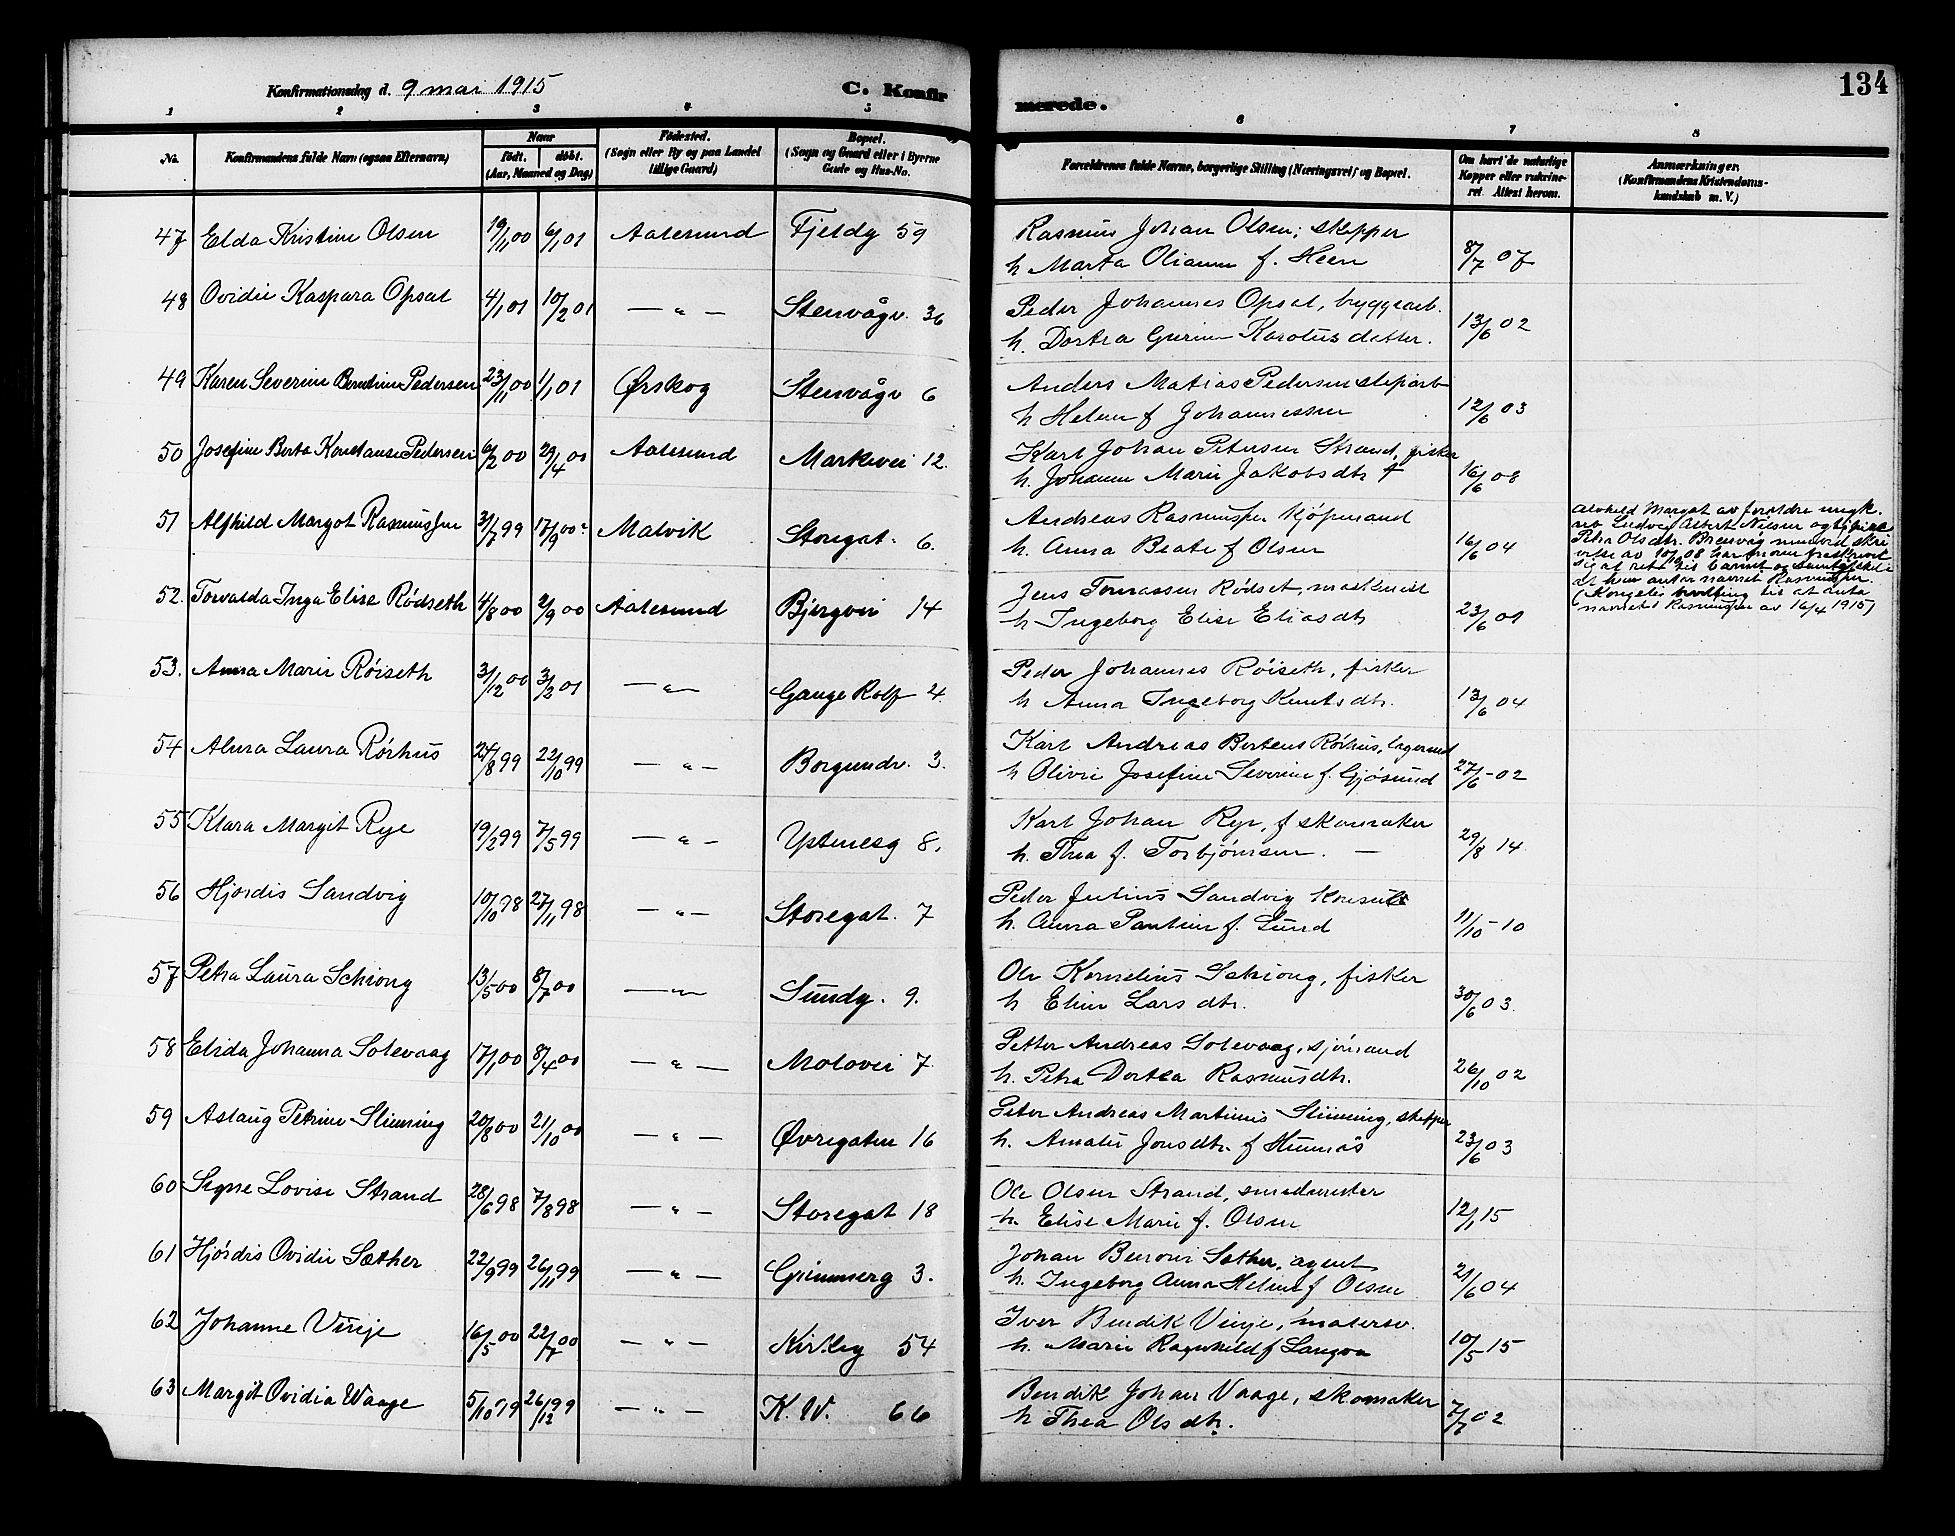 Konfirmationsdag d. 9 mai 1915
C. Konfirmerede.
134
1 2 3 4 5 6 7 8
No.
Konfirmandens fulde Navn (ogsaa Efternavn)
Naar
født. døbt.
(Aar, Maaned og Dag)
Fødested.
(Sogn eller By og paa Landet
tillige Gaard)
Bopæl.
(Sogn og Gaard eller i Byerne
Gade og Hus-No.
Forældrenes fulde Navne, borgerlige Stilling (Næringsvei) og Bopæl.
Om havt de naturlige
Kopper eller vaccine-
ret. Attest herom.
Anmærkninger.
(Konfirmandens Kristendoms-
kundskab m. V.)
47 Elda Kristine Olsen 19/1 00 6/1 01 Aalesund Fjeldg 59 Rasmus Johan Olsen, skipper
h Marta Olianna f. Heen 8/7 07
48 Ovidie Kaspara Opsal 4/1 01 10/2 01 — " — Stenvågv. 36 Peder Johannes Opsal, byggearb.
h. Dortea Gurine Karolusdatter. 13/6 02
49 Karen Severine Berntine Pedersen 23/11 00 1/1 01 Ørskog Stenvågv 6 Anders Matias Pedersen sliparb
h Helene f Johannessen 12/6 03
50 Josefine Berta Konstanse Pedersen 6/2 00 29/4 00 Aalesund Markevei 12. Karl Johan Petersen Strand, fisker
h. Johanne Marie Jakobsdtr † 16/6 08
51 Alfhild Margot Rasmussen 31/7 99 17/9 00 Malvik Storegat. 6. Andreas Rasmussen kjøpmand
h. Anna Beate f Olsen 16/6 04
Alvhild Margat av foreldre ungk.
Ludvig Albert Nilsen og pike
Petra Olsdtr. ved skri
velse av 10/9 08 har moren fraskrevet
sig at rett til barnet og samtykket
at hun antar navnet Rasmussen.
(Kongelig bevilling til at anta
navnet Rasmussen av 16/4 1915)
52. Torvalda Inga Elise Rødseth 4/8 00 2/9 00 Aalesund Bjergvei 14 Jens Tomassen Rødset, maskinist
h Ingeborg Elise Eliasdtr 23/6 01
53. Anna Marie Røiseth 31/12 00 3/2 01 — " — Gange Rolf 4. Peder Johannes Røiseth, fisker
h Anna Ingeborg Knutsdtr. 13/6 04
54 Alma Laura Rørhus 24/8 99 22/10 99 — " — Borgundv. 3. Karl Andreas Bertens Rørhus, lagermd
h Olivie Josefine Severine f. Gjøsund 27/6 - 02
55 Klara Margit Rye 19/2 99 7/5 99 — " — Ystenesg 8. Karl Johan Rye, f skomaker
h. Thea f. Torbjørnsen. — 29/8 14
56 Hjørdis Sandvig 10/10 98 27/11 98 — " — Storegat. 7 Peder Julius Sandvig konsul
h. Anna Pauline f. Lund 11/10 - 10
57 Petra Laura Schiong 13/5 00 8/7 00 — " — Sundg. 9. Ole Kornelius Schiong, fisker
h Eline Larsdtr. 30/6 03.
58 Elida Johanna Solevaag 17/1 00 8/4 00 — " — Molovei 7 Petter Andreas Solevaag, sjømand
h. Petra Dortea Rasmusdtr. 26/10 02
59 Aslaug Petrine Slinning 20/8 00 21/10 00 — " — Øvregaten 16 Peter Andreas Martinus Slinning, skipper
h. Amalie Jonsdtr. f Humnås 23/6 03
60 Signe Lovise Strand 28/6 98 7/8 98 — " — Storegat 18 Ole Olsen Strand, smedmester
h. Elise Marie f. Olsen 12/1 15
61 Hjørdis Ovidie Sæther 22/9 99 26/11 99 — " — Grimmerg 3. Johan Benoni Sæther, agent
h. Ingeborg Anna Heline f Olsen 21/6 04
62 Johanne Vinje 16/5 00 22/7 00 — " — Kirkeg 54 Iver Bendik Vinje, malersv.
h. Marie Ragnhild f Langva 10/5 15
63 Margit Ovidia Waage 5/10 79 26/12 99 — " — K. W. 66 Bendik Johan Vaage, skomaker
h Thea Olsdtr. 7/7 02